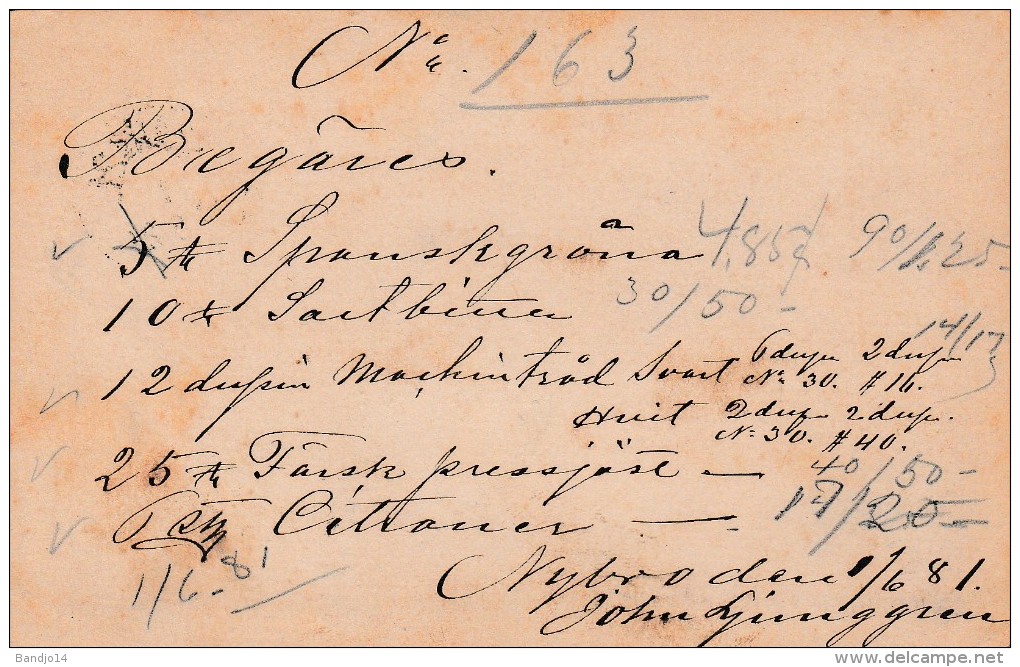 No. 163
Begäres.
5 ℔ Spanskgröna 4,85 90/
10 ℔ 30/50-
12 dusin Maskintråd Svart dup 2 dup 14/17
No 30. # 16.
Hvit 2 dup 2 dup.
No 30. # 40.
25 ℔ Färsk pressjäst — 40/50-
Citroner — 17/20-
1/6-81
Nybro den 1/6 81.
John Ljunggren
Bandjo14
delcampe.net